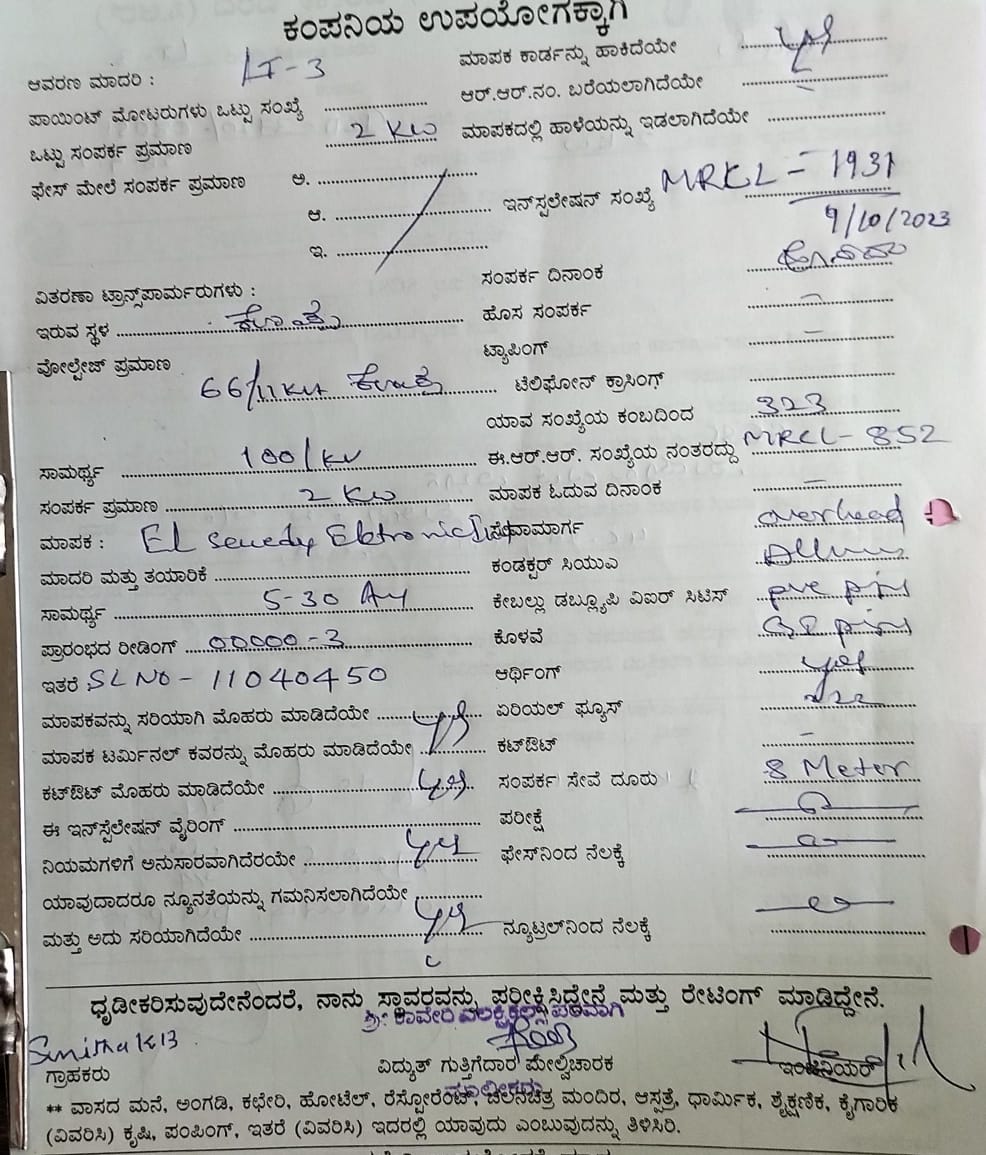 ಕಂಪನಿಯ ಉಪಯೋಗಕ್ಕಾಗಿ
ಆವರಣ ಮಾದರಿ : LT-3
ಮಾಪಕ ಕಾರ್ಡನ್ನು ಹಾಕಿದೆಯೇ yes
ಪಾಯಿಂಟ್ ಮೋಟರುಗಳು ಒಟ್ಟು ಸಂಖ್ಯೆ
ಆರ್.ಆರ್.ನಂ. ಬರೆಯಲಾಗಿದೆಯೇ
ಒಟ್ಟು ಸಂಪರ್ಕ ಪ್ರಮಾಣ 2 KW
ಮಾಪಕದಲ್ಲಿ ಹಾಳೆಯನ್ನು ಇಡಲಾಗಿದೆಯೇ
ಫೇಸ್ ಮೇಲೆ ಸಂಪರ್ಕ ಪ್ರಮಾಣ ಅ.
ಆ.
ಇ.
ಇನ್‌ಸ್ಪಲೇಷನ್ ಸಂಖ್ಯೆ MRCL - 1931
9/10/2023
ಸಂಪರ್ಕ ದಿನಾಂಕ
ವಿತರಣಾ ಟ್ರಾನ್ಸ್‌ಪಾರ್ಮರುಗಳು :
ಇರುವ ಸ್ಥಳ
ಹೊಸ ಸಂಪರ್ಕ
ವೋಲ್ಟೇಜ್ ಪ್ರಮಾಣ
66/11 KV
ಟ್ಯಾಪಿಂಗ್
ಟೆಲಿಫೋನ್ ಕ್ರಾಸಿಂಗ್
ಯಾವ ಸಂಖ್ಯೆಯ ಕಂಬದಿಂದ 323
ಸಾಮರ್ಥ್ಯ 100/KV
ಈ.ಆರ್.ಆರ್. ಸಂಖ್ಯೆಯ ನಂತರದ್ದು MRCL-852
ಸಂಪರ್ಕ ಪ್ರಮಾಣ 2 KW
ಮಾಪಕ ಓದುವ ದಿನಾಂಕ
ಮಾಪಕ :
ಸೇವಾಮಾರ್ಗ overhead
ಮಾದರಿ ಮತ್ತು ತಯಾರಿಕೆ
ಕಂಡಕ್ಟರ್ ಸಿಯುಎ
ಸಾಮರ್ಥ್ಯ 5-30
ಕೇಬಲ್ಲು ಡಬ್ಲ್ಯೂಪಿ ವಿಐರ್ ಸಿಟಿಸ್
ಪ್ರಾರಂಭದ ರೀಡಿಂಗ್ 00000-3
ಕೊಳವೆ
ಇತರೆ SL NO - 11040450
ಆರ್ಥಿಂಗ್ yes
ಮಾಪಕವನ್ನು ಸರಿಯಾಗಿ ಮೊಹರು ಮಾಡಿದೆಯೇ yes
ಏರಿಯಲ್ ಫ್ಯೂಸ್
ಮಾಪಕ ಟರ್ಮಿನಲ್ ಕವರನ್ನು ಮೊಹರು ಮಾಡಿದೆಯೇ
ಕಟ್‌ಔಟ್
ಕಟ್‌ಔಟ್ ಮೊಹರು ಮಾಡಿದೆಯೇ yes
ಸಂಪರ್ಕ ಸೇವೆ ದೂರು 8 Meter
ಈ ಇನ್‌ಸ್ಪೆಲೇಷನ್ ವೈರಿಂಗ್
ಪರೀಕ್ಷೆ
ನಿಯಮಗಳಿಗೆ ಅನುಸಾರವಾಗಿದೆರಯೇ yes
ಫೇಸ್‌ನಿಂದ ನೆಲಕ್ಕೆ
ಯಾವುದಾದರೂ ನ್ಯೂನತೆಯನ್ನು ಗಮನಿಸಲಾಗಿದೆಯೇ
ಮತ್ತು ಅದು ಸರಿಯಾಗಿದೆಯೇ yes
ನ್ಯೂಟ್ರಲ್‌ನಿಂದ ನೆಲಕ್ಕೆ
ಧೃಡೀಕರಿಸುವುದೇನೆಂದರೆ, ನಾನು ಸ್ಥಾವರವನ್ನು ಪರೀಕ್ಷಿಸಿದ್ದೇನೆ ಮತ್ತು ರೇಟಿಂಗ್ ಮಾಡಿದ್ದೇನೆ.
ಶ್ರೀ ಕಾವೇರಿ ಎಲೆಕ್ಟ್ರಿಕಲ್ಸ್ ಪರವಾಗಿ
ಗ್ರಾಹಕರು
ವಿದ್ಯುತ್ ಗುತ್ತಿಗೆದಾರ ಮೇಲ್ವಿಚಾರಕ
ಇಂಜಿನಿಯರ್
ಮಾಲೀಕರು
** ವಾಸದ ಮನೆ, ಅಂಗಡಿ, ಕಛೇರಿ, ಹೋಟೆಲ್, ರೆಸ್ಟೋರೆಂಟ್, ಚಲನಚಿತ್ರ ಮಂದಿರ, ಆಸ್ಪತ್ರೆ, ಧಾರ್ಮಿಕ, ಶೈಕ್ಷಣಿಕ, ಕೈಗಾರಿಕ
(ವಿವರಿಸಿ) ಕೃಷಿ, ಪಂಪಿಂಗ್, ಇತರೆ (ವಿವರಿಸಿ) ಇದರಲ್ಲಿ ಯಾವುದು ಎಂಬುವುದನ್ನು ತಿಳಿಸಿರಿ.